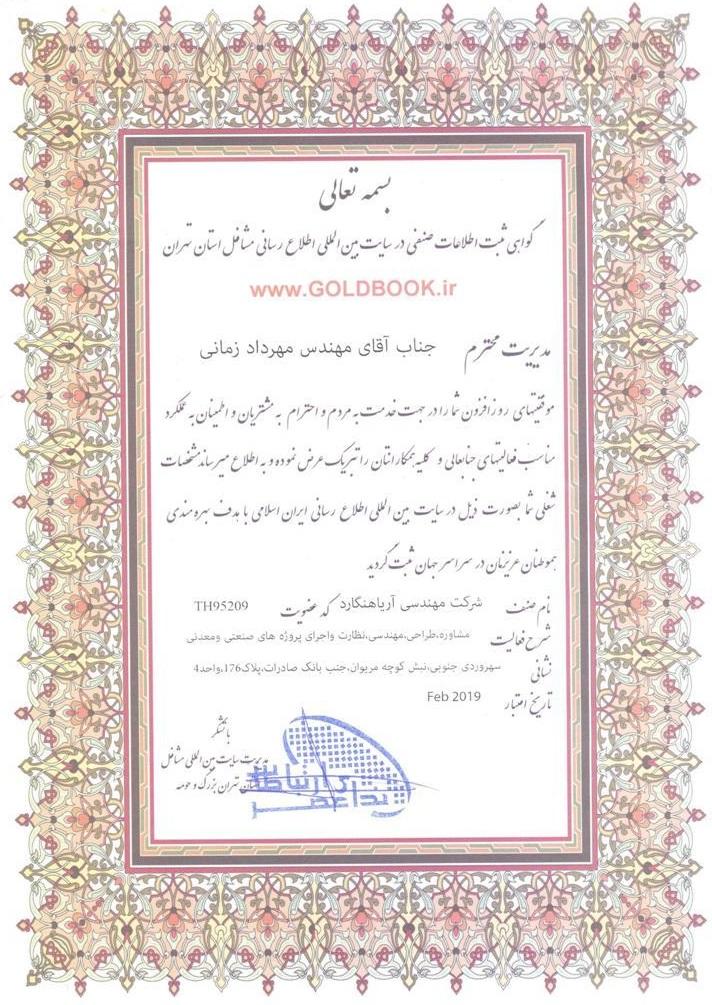 بسمه تعالی
گواهی ثبت اطلاعات صنفی در سایت بین المللی اطلاع رسانی مشاغل استان تهران
www.GOLDBOOK.ir
مدیریت محترم جناب آقای مهندس مهرداد زمانی
موفقیتهای روز افزون شما را در جهت خدمت به مردم و احترام به مشتریان و اطمینان به عملکرد
مناسب فعالیتهای جنابعالی و کلیه همکارانتان را تبریک عرض نموده و به اطلاع میرساند مشخصات
شغلی شما بصورت ذیل در سایت بین المللی اطلاع رسانی ایران اسلامی با هدف بهره مندی
هموطنان عزیزمان در سراسر جهان ثبت گردید
نام صنف شرکت مهندسی آریاهنگارد کد عضویت TH95209
شرح فعالیت مشاوره،طراحی،مهندسی،نظارت واجرای پروژه های صنعتی ومعدنی
نشانی سهروردی جنوبی،نبش کوچه مریوان،جنب بانک صادرات،پلاک176،واحد4
تاریخ اعتبار Feb 2019
باتشکر
مدیریت سایت بین المللی مشاغل
استان تهران بزرگ و حومه
ارتباط
ندا عصر